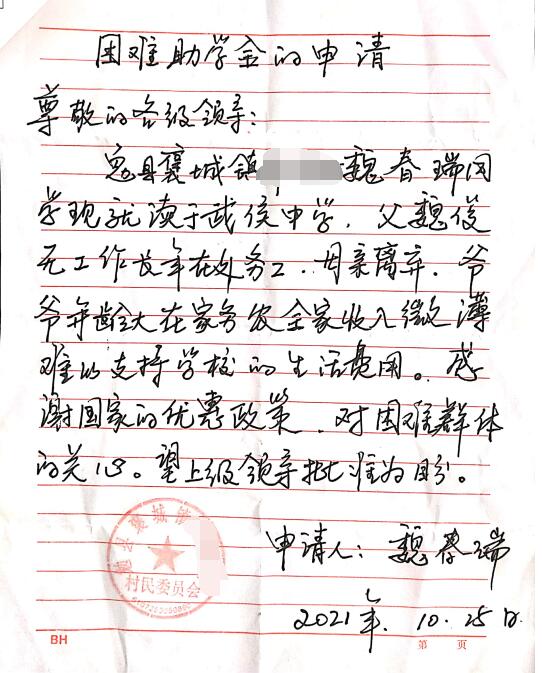 困难助学金的申请
尊敬的各级领导:
勉县褒城镇 魏春瑞同
学现就读于武侯中学. 父魏俊
无工作长年在外务工. 母亲离弃. 爷
爷年龄大在家务农全家收入微薄
难以支持学校的生活费用。感
谢国家的优惠政策. 对困难群体
的关心。望上级领导批准为盼。
申请人: 魏春瑞
2021年. 10. 25日.
村民委员会
BH
第 页